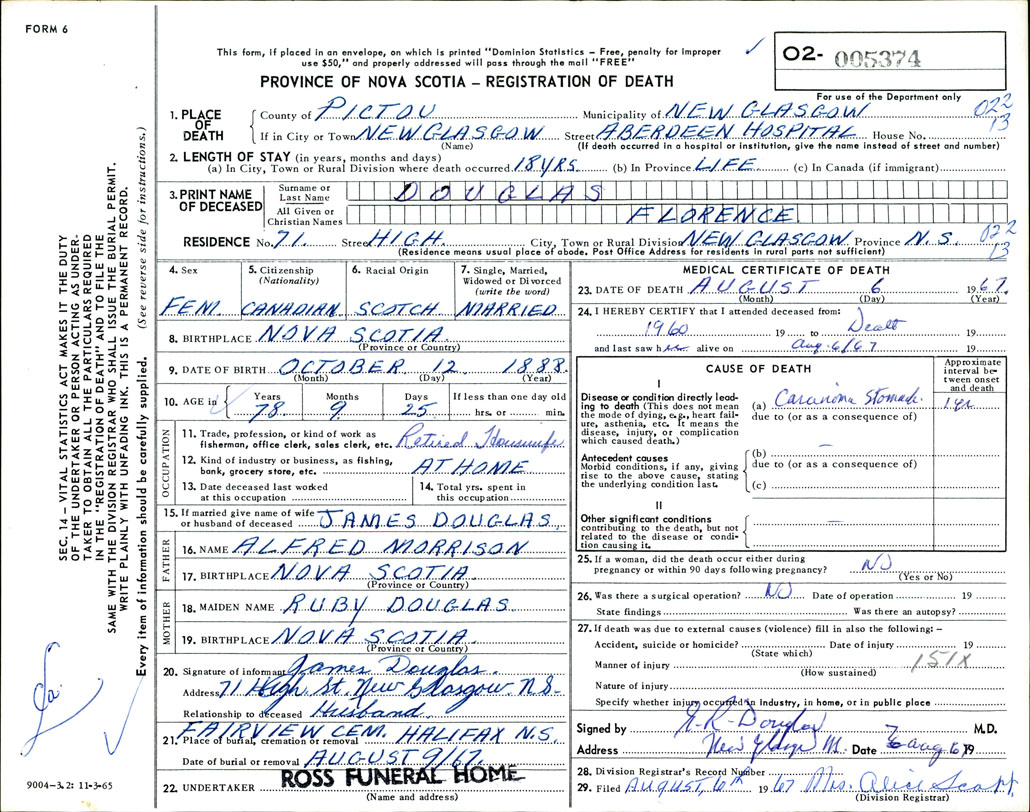 FORM 6
This form, if placed in an envelope, on which is printed "Dominion Statistics – Free, penalty for improper
use $50," and properly addressed will pass through the mail "FREE"
PROVINCE OF NOVA SCOTIA – REGISTRATION OF DEATH
02- 005374
For use of the Department only
022
13
1. PLACE OF DEATH
County of PICTOU Municipality of NEW GLASGOW
If in City or Town NEW GLASGOW Street ABERDEEN HOSPITAL House No.
(Name) (If death occurred in a hospital or institution, give the name instead of street and number)
2. LENGTH OF STAY (in years, months and days)
(a) In City, Town or Rural Division where death occurred 18 YRS. (b) In Province LIFE. (c) In Canada (if immigrant)
3. PRINT NAME OF DECEASED
Surname or Last Name DOUGLAS
All Given or Christian Names FLORENCE
RESIDENCE No. 71. Street HIGH. City, Town or Rural Division NEW GLASGOW Province N.S. 022
13
(Residence means usual place of abode. Post Office Address for residents in rural parts not sufficient)
4. Sex
FEM.
5. Citizenship (Nationality)
CANADIAN
6. Racial Origin
SCOTCH
7. Single, Married, Widowed or Divorced (write the word)
MARRIED
8. BIRTHPLACE NOVA SCOTIA.
(Province or Country)
9. DATE OF BIRTH OCTOBER 12. 1888.
(Month) (Day) (Year)
10. AGE in Years 78. Months 9 Days 25 If less than one day old hrs. or min.
OCCUPATION
11. Trade, profession, or kind of work as
fisherman, office clerk, sales clerk, etc. Retired Housewife
12. Kind of industry or business, as fishing,
bank, grocery store, etc. AT HOME
13. Date deceased last worked
at this occupation
14. Total yrs. spent in
this occupation
15. If married give name of wife
or husband of deceased JAMES DOUGLAS.
FATHER
16. NAME ALFRED MORRISON
17. BIRTHPLACE NOVA SCOTIA.
(Province or Country)
MOTHER
18. MAIDEN NAME RUBY DOUGLAS
19. BIRTHPLACE NOVA SCOTIA.
(Province or Country)
20. Signature of informant James Douglas.
Address 71 High St. New Glasgow N.S.
Relationship to deceased Husband.
21. Place of burial, cremation or removal FAIRVIEW CEM. HALIFAX N.S.
Date of burial or removal AUGUST 9/67.
22. UNDERTAKER ROSS FUNERAL HOME
(Name and address)
MEDICAL CERTIFICATE OF DEATH
23. DATE OF DEATH AUGUST 6 1967.
(Month) (Day) (Year)
24. I HEREBY CERTIFY that I attended deceased from:
1960 19 to Death 19
and last saw her alive on Aug. 6/67 19
CAUSE OF DEATH
Approximate interval between onset and death
I
Disease or condition directly leading to death (This does not mean the mode of dying, e.g., heart failure, asthenia, etc. It means the disease, injury, or complication which caused death.)
(a) Carcinoma Stomach 1 yr
due to (or as a consequence of)
—
Antecedent causes
Morbid conditions, if any, giving rise to the above cause, stating the underlying condition last.
(b)
due to (or as a consequence of)
(c)
II
Other significant conditions
contributing to the death, but not related to the disease or condition causing it.
—
25. If a woman, did the death occur either during
pregnancy or within 90 days following pregnancy? NO
(Yes or No)
26. Was there a surgical operation? NO Date of operation 19
State findings Was there an autopsy?
27. If death was due to external causes (violence) fill in also the following: –
Accident, suicide or homicide? Date of injury 19
(State which)
Manner of injury 151X
(How sustained)
Nature of injury
Specify whether injury occurred in industry, in home, or in public place
Signed by R. Douglas M.D.
Address New Glasgow Date Aug 67 19
28. Division Registrar's Record Number
29. Filed AUGUST, 1967 Mrs. Alice
(Division Registrar)
SEC. 14 – VITAL STATISTICS ACT MAKES IT THE DUTY
OF THE UNDERTAKER OR PERSON ACTING AS UNDER-
TAKER TO OBTAIN ALL THE PARTICULARS REQUIRED
IN THE "REGISTRATION OF DEATH" AND TO FILE THE
SAME WITH THE DIVISION REGISTRAR WHO SHALL ISSUE THE BURIAL PERMIT.
WRITE PLAINLY WITH UNFADING INK. THIS IS A PERMANENT RECORD.
Every item of information should be carefully supplied. (See reverse side for instructions.)
9004–3.2: 11-3-65